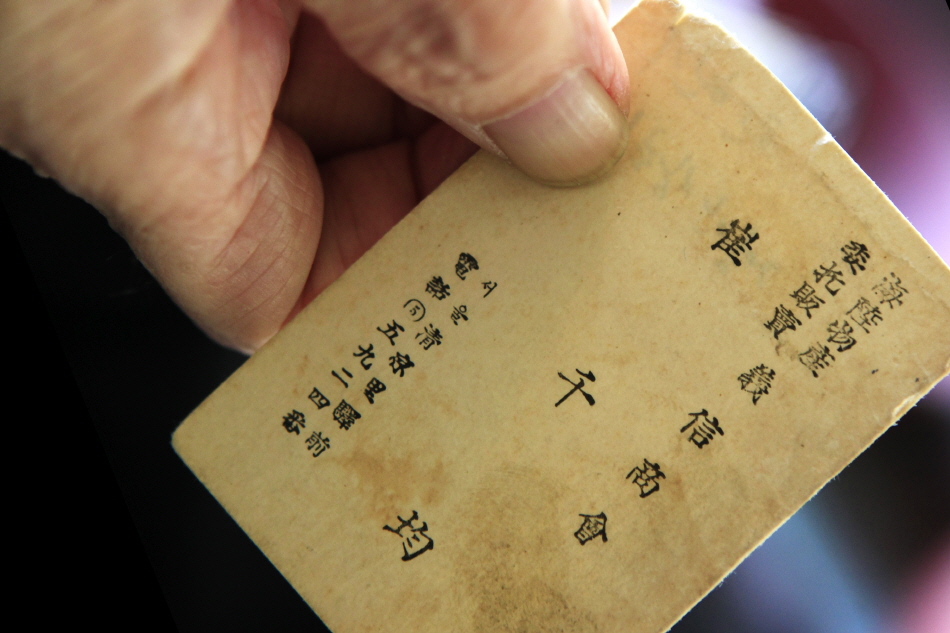 海陸物産
委托販賣
義信商會
崔千均
서울淸凉里驛前
電話㊄五九二四番